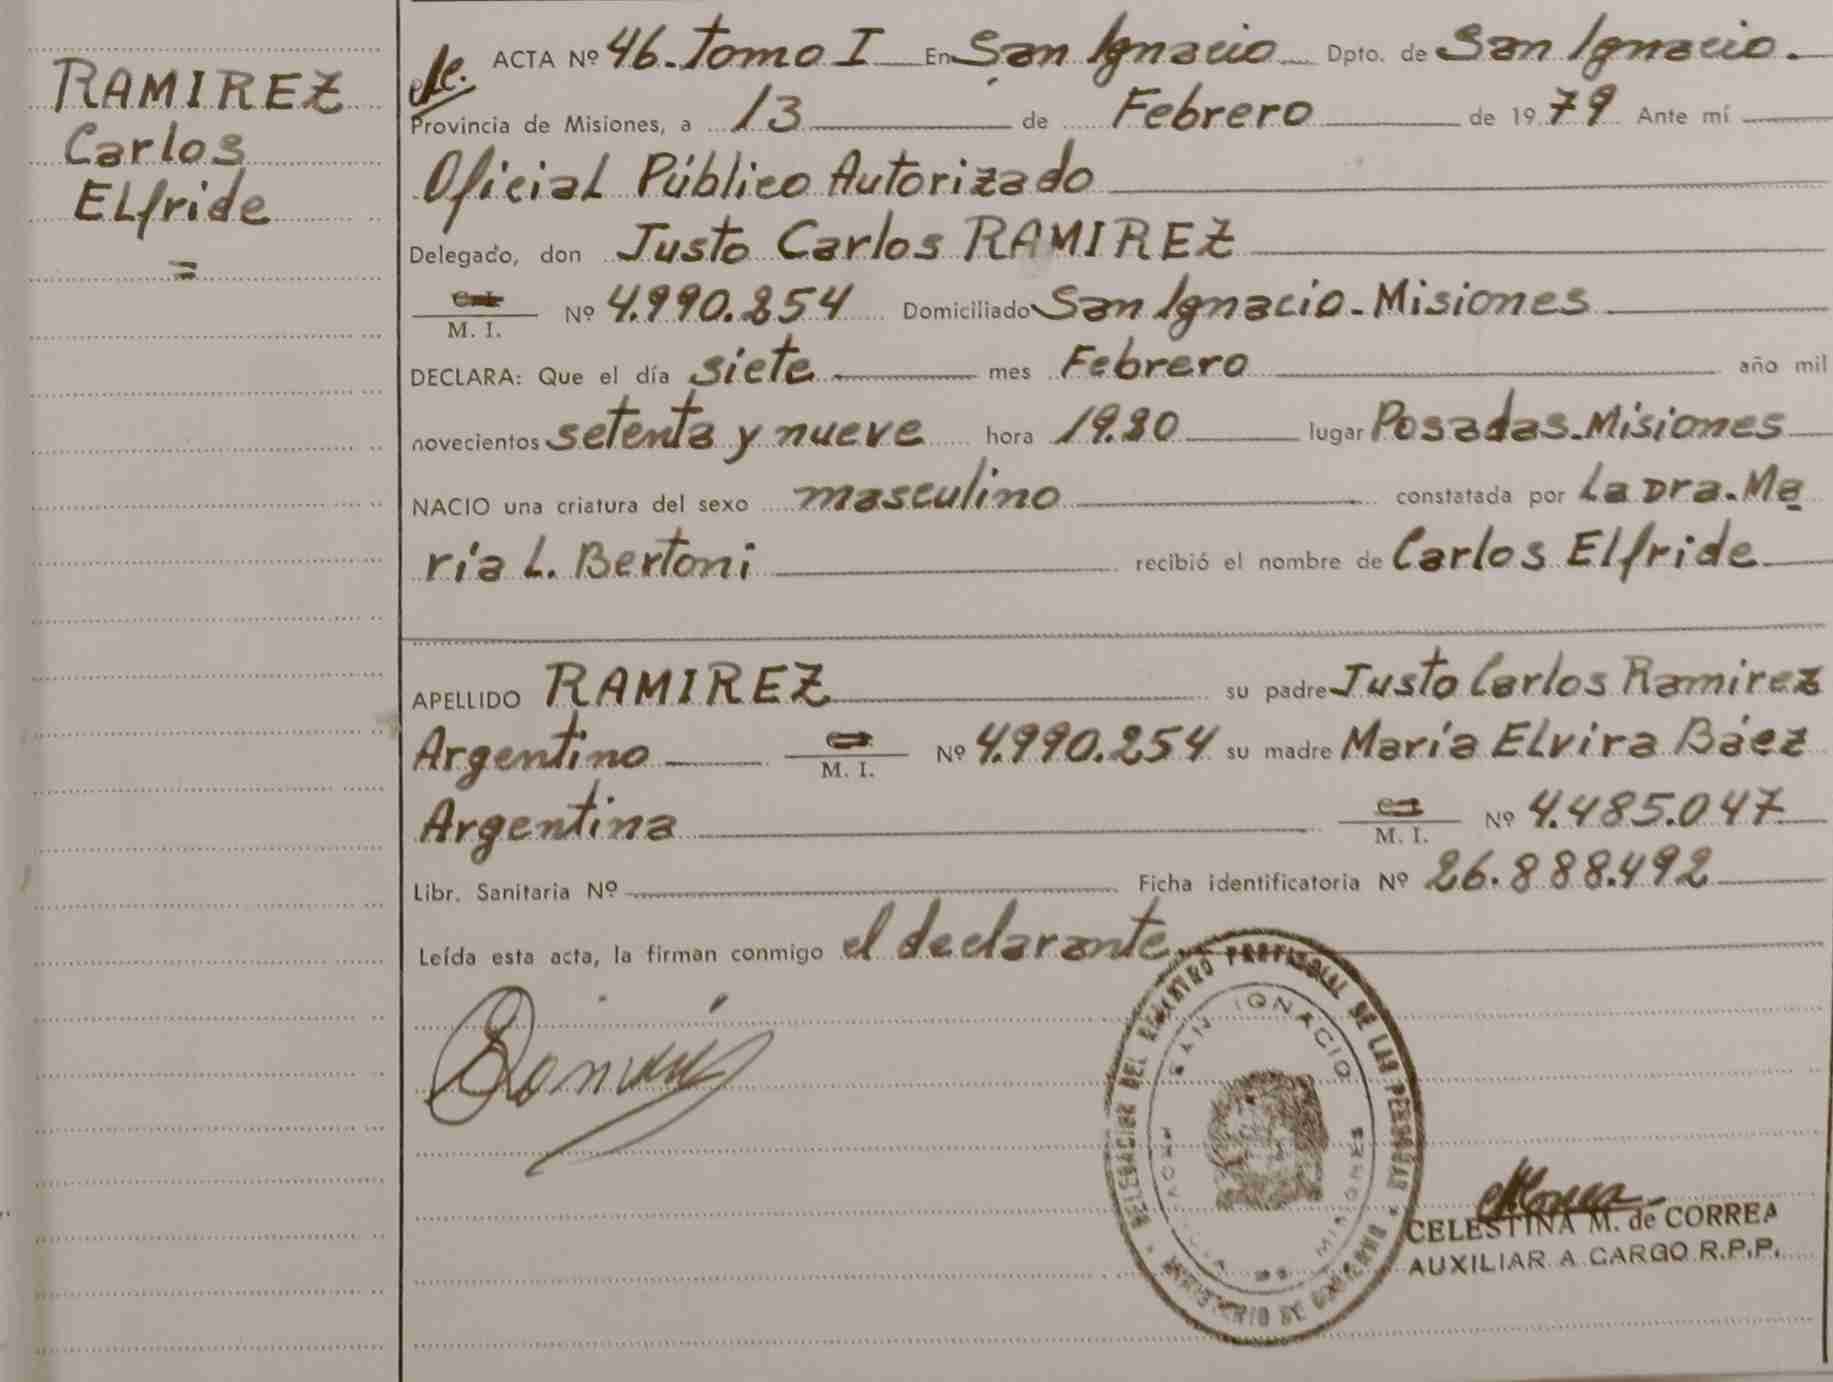 RAMIREZ
Carlos
ELfride
=
ACTA Nº 46. Tomo I En San Ignacio Dpto. de San Ignacio.
Provincia de Misiones, a 13 de Febrero de 1979 Ante mí
Oficial Público Autorizado
Delegado, don Justo Carlos RAMIREZ
M. I. Nº 4.990.254 Domiciliado San Ignacio. Misiones
DECLARA: Que el día siete mes Febrero año mil
novecientos setenta y nueve hora 19.30 lugar Posadas. Misiones
NACIO una criatura del sexo masculino constatada por La Dra. Ma
ría L. Bertoni recibió el nombre de Carlos Elfride
APELLIDO RAMIREZ su padre Justo Carlos Ramirez
Argentino M. I. Nº 4.990.254 su madre María Elvira Báez
Argentina M. I. Nº 4.485.047
Libr. Sanitaria Nº Ficha identificatoria Nº 26.888.492
Leída esta acta, la firman conmigo el declarante
DELEGACION DEL REGISTRO PROVINCIAL DE LAS PERSONAS
SAN IGNACIO
MISIONES
MINISTERIO DE GOBIERNO
CELESTINA M. de CORREA
AUXILIAR A CARGO R.P.P.